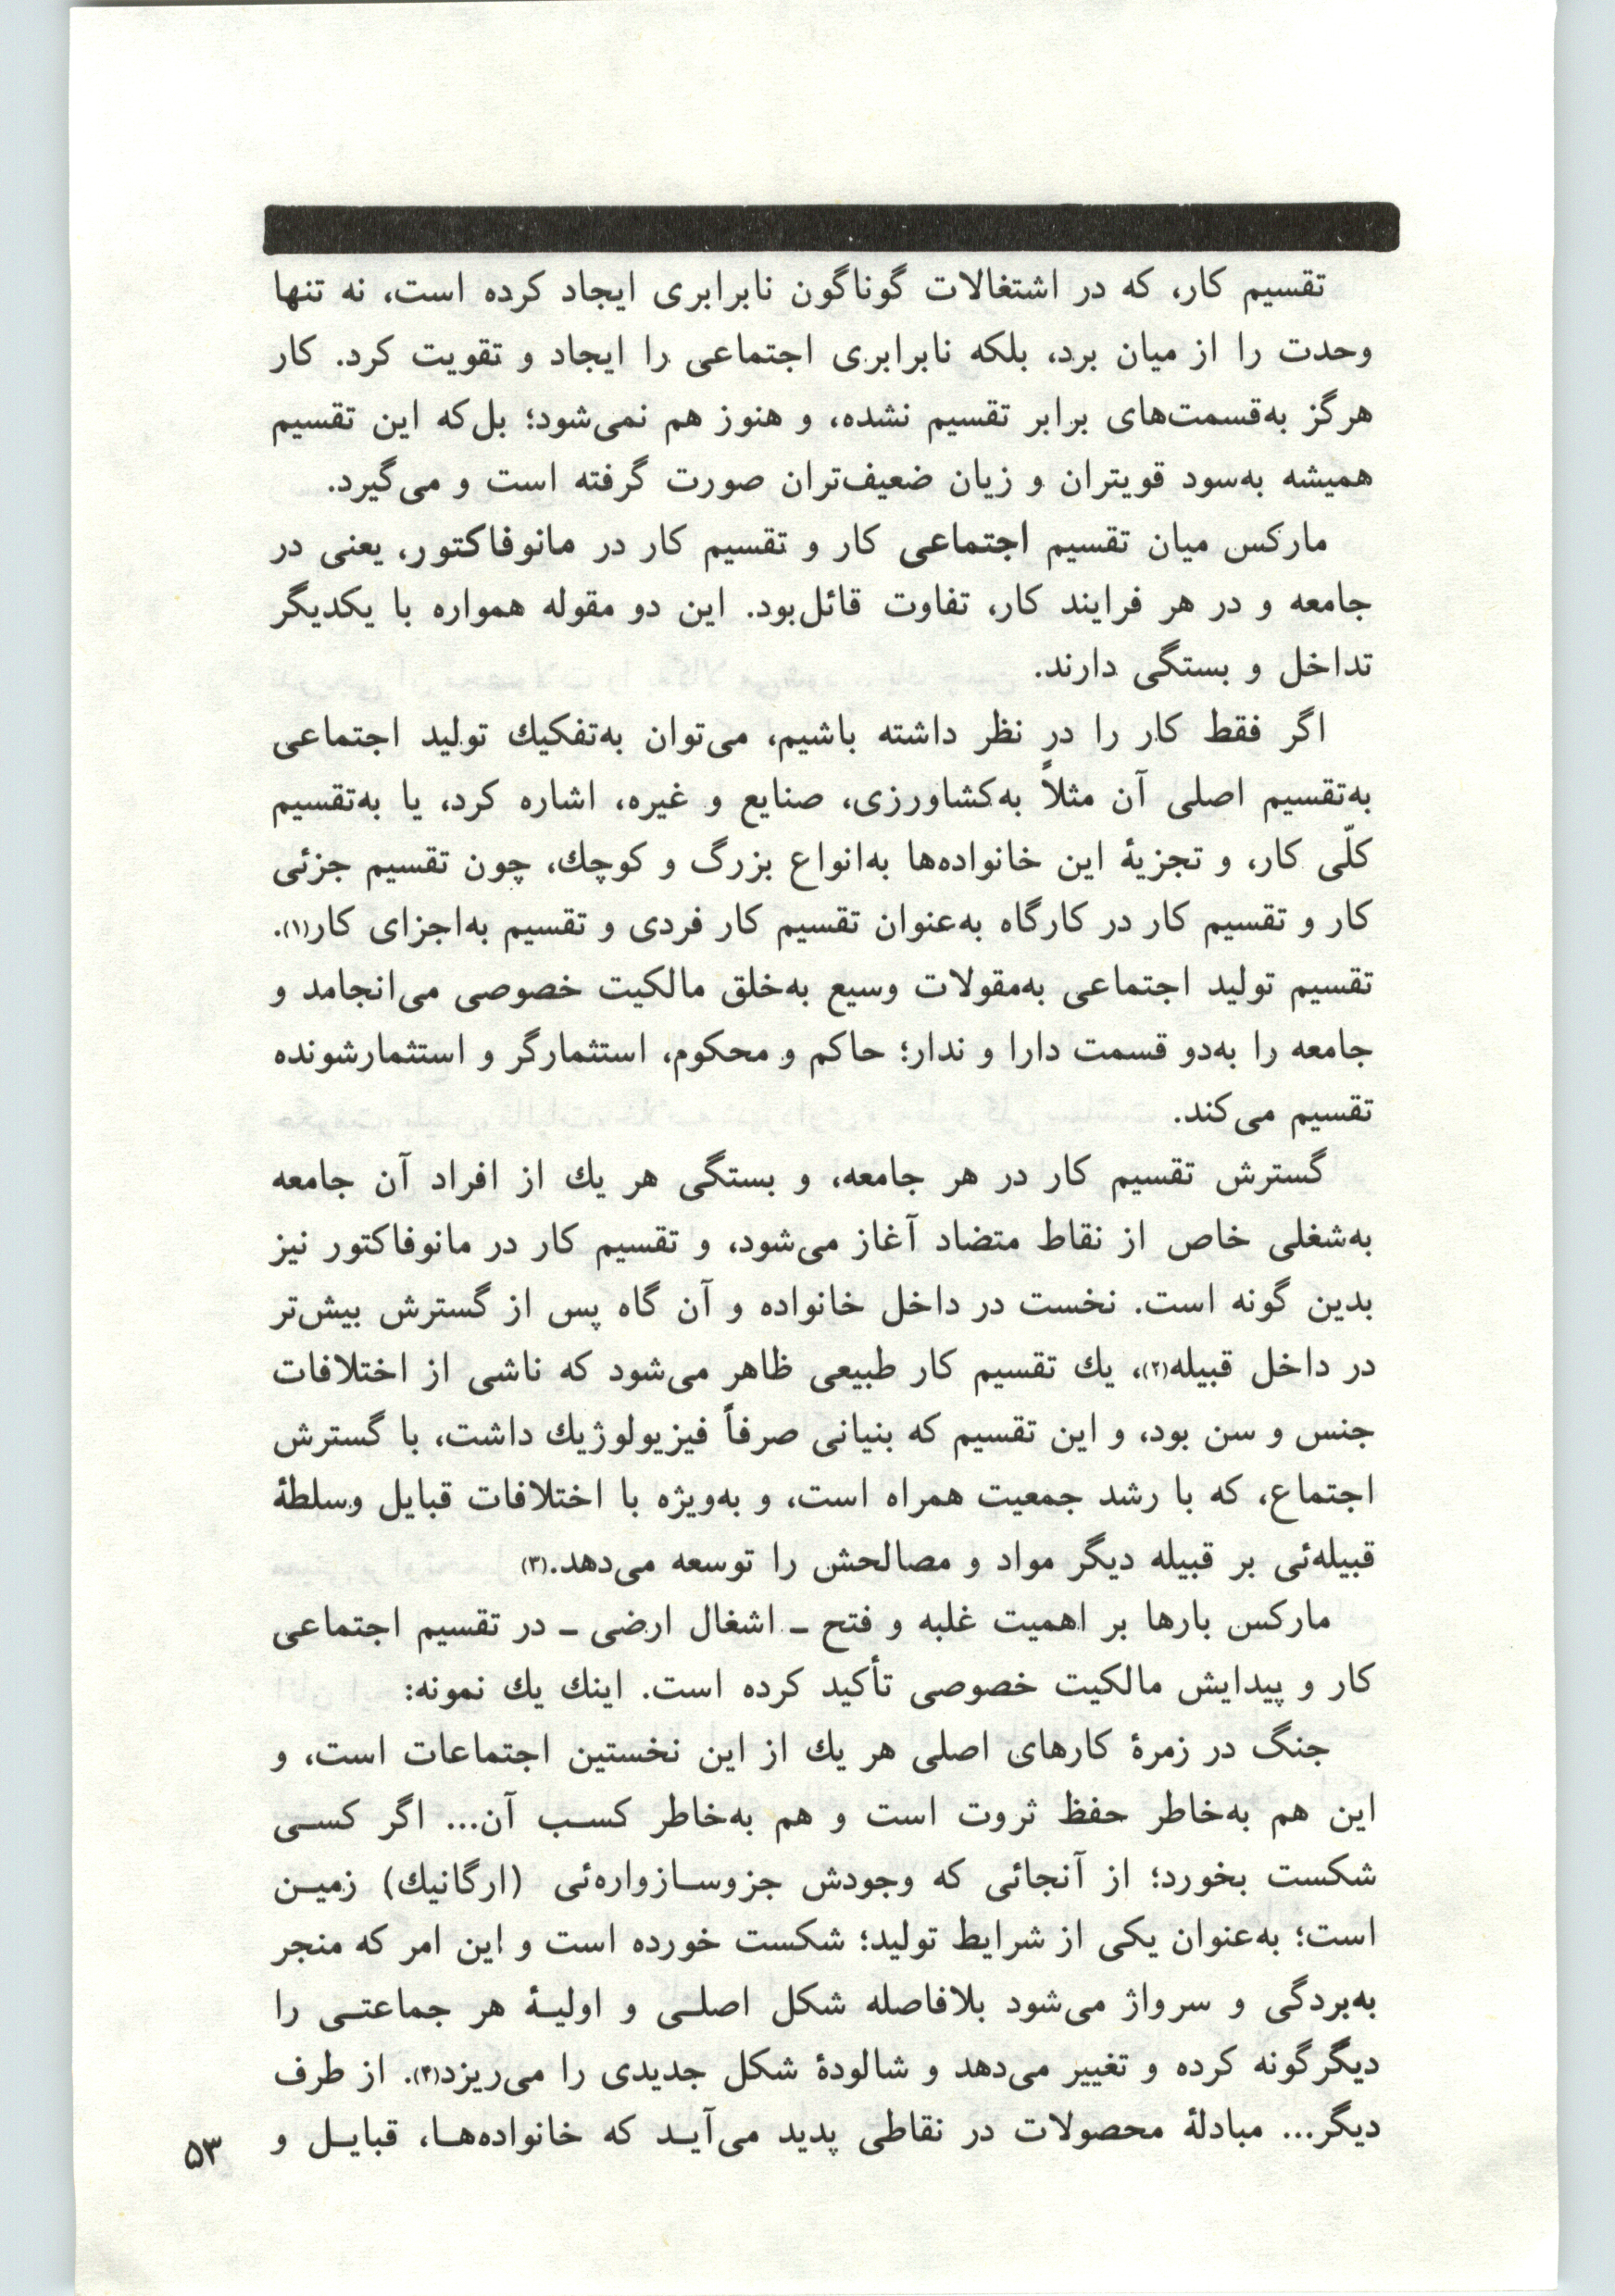 تقسیم کار، که در اشتغالات گوناگون نابرابری ایجاد کرده است، نه تنها
وحدت را از میان برد، بلکه نابرابری اجتماعی را ایجاد و تقویت کرد. کار
هرگز به‌قسمت‌های برابر تقسیم نشده، و هنوز هم نمی‌شود؛ بل‌که این تقسیم
همیشه به‌سود قویتران و زیان ضعیف‌تران صورت گرفته است و می‌گیرد.
مارکس میان تقسیم اجتماعی کار و تقسیم کار در مانوفاکتور، یعنی در
جامعه و در هر فرایند کار، تفاوت قائل‌بود. این دو مقوله همواره با یکدیگر
تداخل و بستگی دارند.
اگر فقط کار را در نظر داشته باشیم، می‌توان به‌تفکیك تولید اجتماعی
به‌تقسیم اصلی آن مثلاً به‌کشاورزی، صنایع و غیره، اشاره کرد، یا به‌تقسیم
کلّی کار، و تجزیهٔ این خانواده‌ها به‌انواع بزرگ و کوچك، چون تقسیم جزئی
کار و تقسیم کار در کارگاه به‌عنوان تقسیم کار فردی و تقسیم به‌اجزای کار(۱).
تقسیم تولید اجتماعی به‌مقولات وسیع به‌خلق مالکیت خصوصی می‌انجامد و
جامعه را به‌دو قسمت دارا و ندار؛ حاکم و محکوم، استثمارگر و استثمارشونده
تقسیم می‌کند.
گسترش تقسیم کار در هر جامعه، و بستگی هر یك از افراد آن جامعه
به‌شغلی خاص از نقاط متضاد آغاز می‌شود، و تقسیم کار در مانوفاکتور نیز
بدین گونه است. نخست در داخل خانواده و آن گاه پس از گسترش بیش‌تر
در داخل قبیله(۲)، یك تقسیم کار طبیعی ظاهر می‌شود که ناشی از اختلافات
جنس و سن بود، و این تقسیم که بنیانی صرفاً فیزیولوژیك داشت، با گسترش
اجتماع، که با رشد جمعیت همراه است، و به‌ویژه با اختلافات قبایل وسلطهٔ
قبیله‌ئی بر قبیله دیگر مواد و مصالحش را توسعه می‌دهد.(۳)
مارکس بارها بر اهمیت غلبه و فتح ـ اشغال ارضی ـ در تقسیم اجتماعی
کار و پیدایش مالکیت خصوصی تأکید کرده است. اینك یك نمونه:
جنگ در زمرهٔ کارهای اصلی هر یك از این نخستین اجتماعات است، و
این هم به‌خاطر حفظ ثروت است و هم به‌خاطر کسـب آن... اگر کسـی
شکست بخورد؛ از آنجائی که وجودش جزوسـازواره‌ئی (ارگانیك) زمیـن
است؛ به‌عنوان یکی از شرایط تولید؛ شکست خورده است و این امر که منجر
به‌بردگی و سرواژ می‌شود بلافاصله شکل اصلـی و اولیـهٔ هر جماعتـی را
دیگرگونه کرده و تغییر می‌دهد و شالودهٔ شکل جدیدی را می‌ریزد(۴). از طرف
دیگر... مبادلهٔ محصولات در نقاطی پدید می‌آیـد که خانواده‌هـا، قبایـل و
۵۳